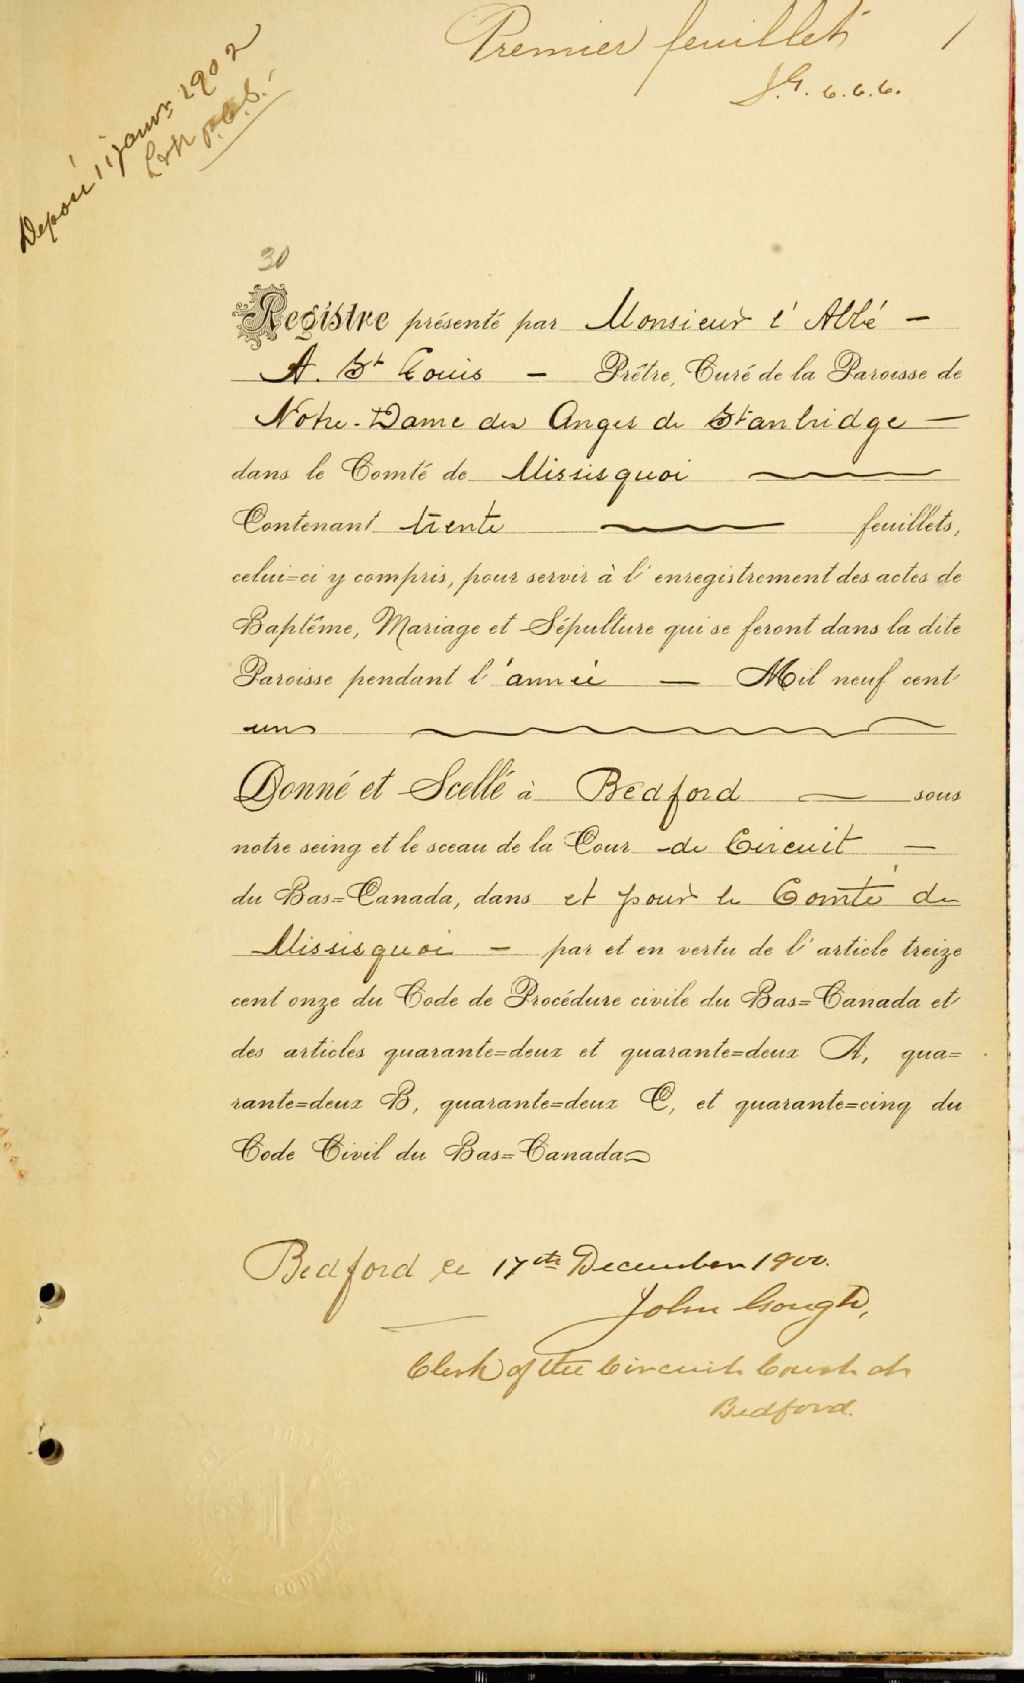 Premier feuillet 1
J.G. c.c.c.
Déposé 11 janvr 1902
P.C.S.
30
Registre présenté par Monsieur l'Abbé -
A. St Louis - Prêtre, Curé de la Paroisse de
Notre-Dame des Anges de Stanbridge -
dans le Comté de Missisquoi
Contenant trente feuillets,
celui=ci y compris, pour servir à l'enregistrement des actes de
Baptême, Mariage et Sépulture qui se feront dans la dite
Paroisse pendant l'année - Mil neuf cent
un
Donné et Scellé à Bedford - sous
notre seing et le sceau de la Cour de Circuit -
du Bas=Canada, dans et pour le Comté de
Missisquoi - par et en vertu de l'article treize
cent onze du Code de Procédure civile du Bas=Canada et
des articles quarante=deux et quarante=deux A, qua=
rante=deux B, quarante=deux C, et quarante=cinq du
Code Civil du Bas=Canada
Bedford ce 17th December 1900.
John Gough,
Clerk of the Circuit Court at
Bedford.